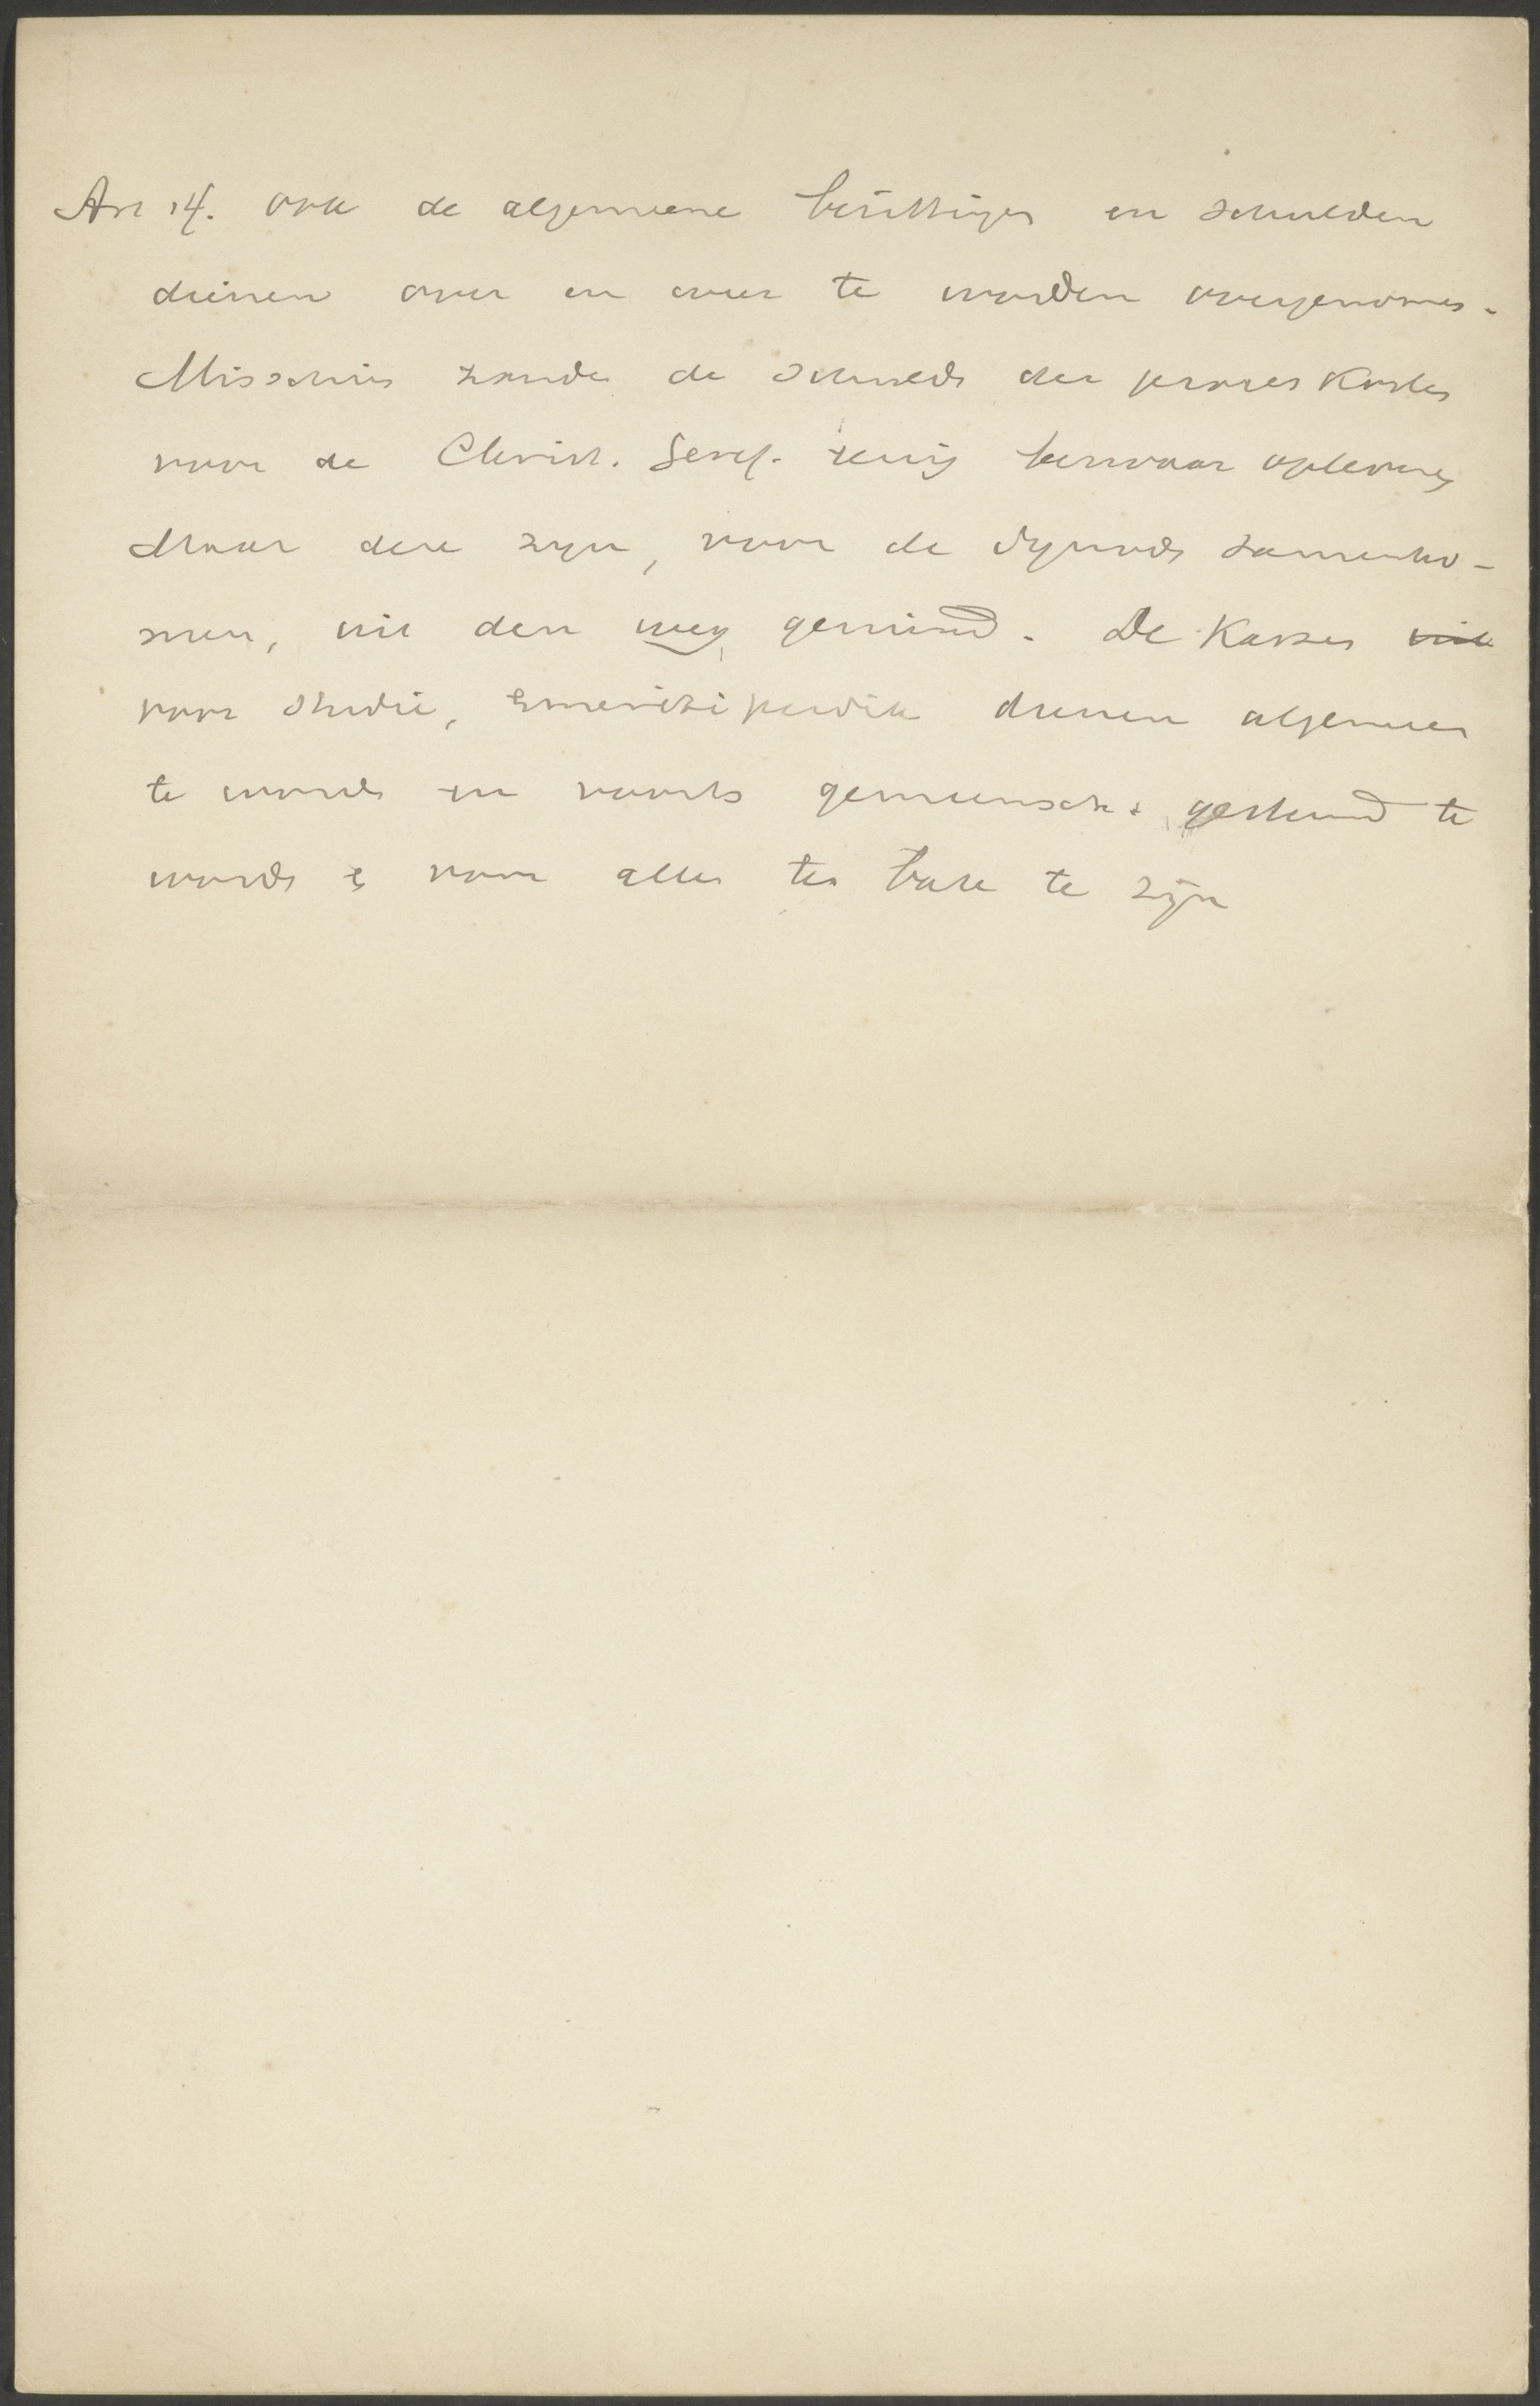 Art 14. ook de algemeene bezittingen en schulden
dienen over en weer te worden overgenomen.
Misschien zouden de schulden der proces kosten
voor de Christ. Geref. eenig bezwaar opleveren
Maar deze zijn, voor de Synode samenko-
men, uit den weg geruimd. De Kassen
voor Studie, Emeriti dienen algemeen
te worden en voorts gemeensch. gesteund te
worden e voor allen ten bate te zijn